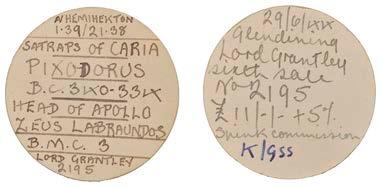 N HEMIHEKTON
1·39/21·38
SATRAPS OF CARIA
PIXODORUS
B.C. 3IX0-33IX
HEAD OF APOLLO
ZEUS LABRAUNDOS
B.M.C. 3
LORD GRANTLEY
2195
29/6/IXIX
Glendining
Lord Grantley
sixth sale
No 2195
£11/-/- +5%
Spink commission
K/gss